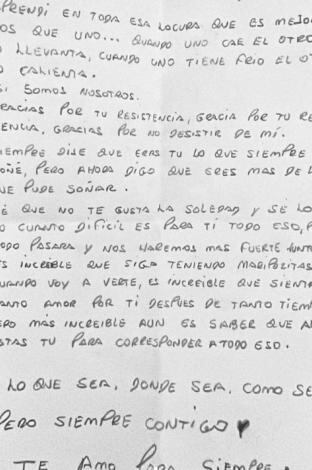 PRENDI EN TODA ESA LOCURA QUE ES MEJO
OS QUE UNO... QUANDO UNO CAE EL OTRO
O LLEVANTA, CUANDO UNO TIENE FRIO EL O
O CALIENTA.
SI SOMOS NOSOTROS.
RACIAS POR TU RESISTENCIA, GRACIA POR TU RE
ENCIA. GRACIAS POR NO DESISTIR DE MÍ.
IEMPRE DIJE QUE ERAS TU LO QUE SIEMPRE
OÑÉ, PERO AHORA DIGO QUE ERES MAS DE L
UE PUDE SOÑAR.
É QUE NO TE GUSTA LA SOLEDAD Y SÉ LO
O CUANTO DIFICIL ES PARA TI TODO ESO, P
ODO PASARA Y NOS HAREMOS MAS FUERTE JUNT
S INCREIBLE QUE SIGA TENIENDO MARIPOZITAS
UANDO VOY A VERTE, ES INCREIBLE QUE SIENT
ANTO AMOR POR TI DESPUES DE TANTO TIEM
ERO MÁS INCREIBLE AUN ES SABER QUE A
STAS TU PARA CORRESPONDER A TODO ESO.
LO QUE SEA, DONDE SEA, COMO SE
PERO SIEMPRE CONTIGO
TE AMO PARA SIEMPRE.